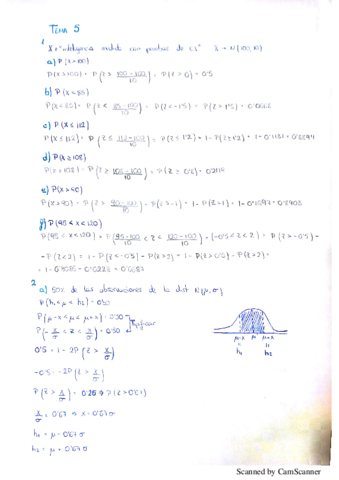 TEMA 5
1
X = "inteligencia medida con pruebas de C.I." X → N(100, 10)
a) P(X>100)
P(X>100) = P(Z > 100-100/10) = P(Z > 0) = 0'5
b) P(X<85)
P(X<85) = P(Z < 85-100/10) = P(Z < -1'5) = P(Z > 1'5) = 0'0668
c) P(X ≤ 112)
P(X ≤ 112) = P(Z ≤ 112-100/10) = P(Z ≤ 1'2) = 1 - P(Z ≥ 1'2) = 1 - 0'1151 = 0'8849
d) P(X ≥ 108)
P(X ≥ 108) = P(Z ≥ 108-100/10) = P(Z ≥ 0'8) = 0'2119
e) P(X > 90)
P(X > 90) = P(Z > 90-100/10) = P(Z > -1) = 1 - P(Z > 1) = 1 - 0'1587
f) P(95 < X < 120)
P(95 < X < 120) = P(95-100/10 < Z < 120-100/10) = (-0'5 < Z < 2) = P(Z > -0'5) -
- P(Z > 2) = 1 - P(Z < -0'5) - P(Z > 2) = 1 - P(Z > 0'5) - P(Z > 2) =
= 1 - 0'3085 - 0'0228 = 0'6687
2
a) 50% de las observaciones de la dist N(μ, σ)
P(h₁ < μ < h₂) = 0'50
P(μ - x < μ < μ + x) = 0'50
P(-x/σ < Z < x/σ) = 0'50
Tipificar
0'5 = 1 - 2P(Z > x/σ)
-0'5 = -2P(Z > x/σ)
P(Z > x/σ) = 0'25 → P(Z > 0'67)
x/σ = 0'67 ⇒ x = 0'67σ
h₁ = μ - 0'67σ
h₂ = μ + 0'67σ
μ-x μ μ+x
h₁ h₂
Scanned by CamScanner